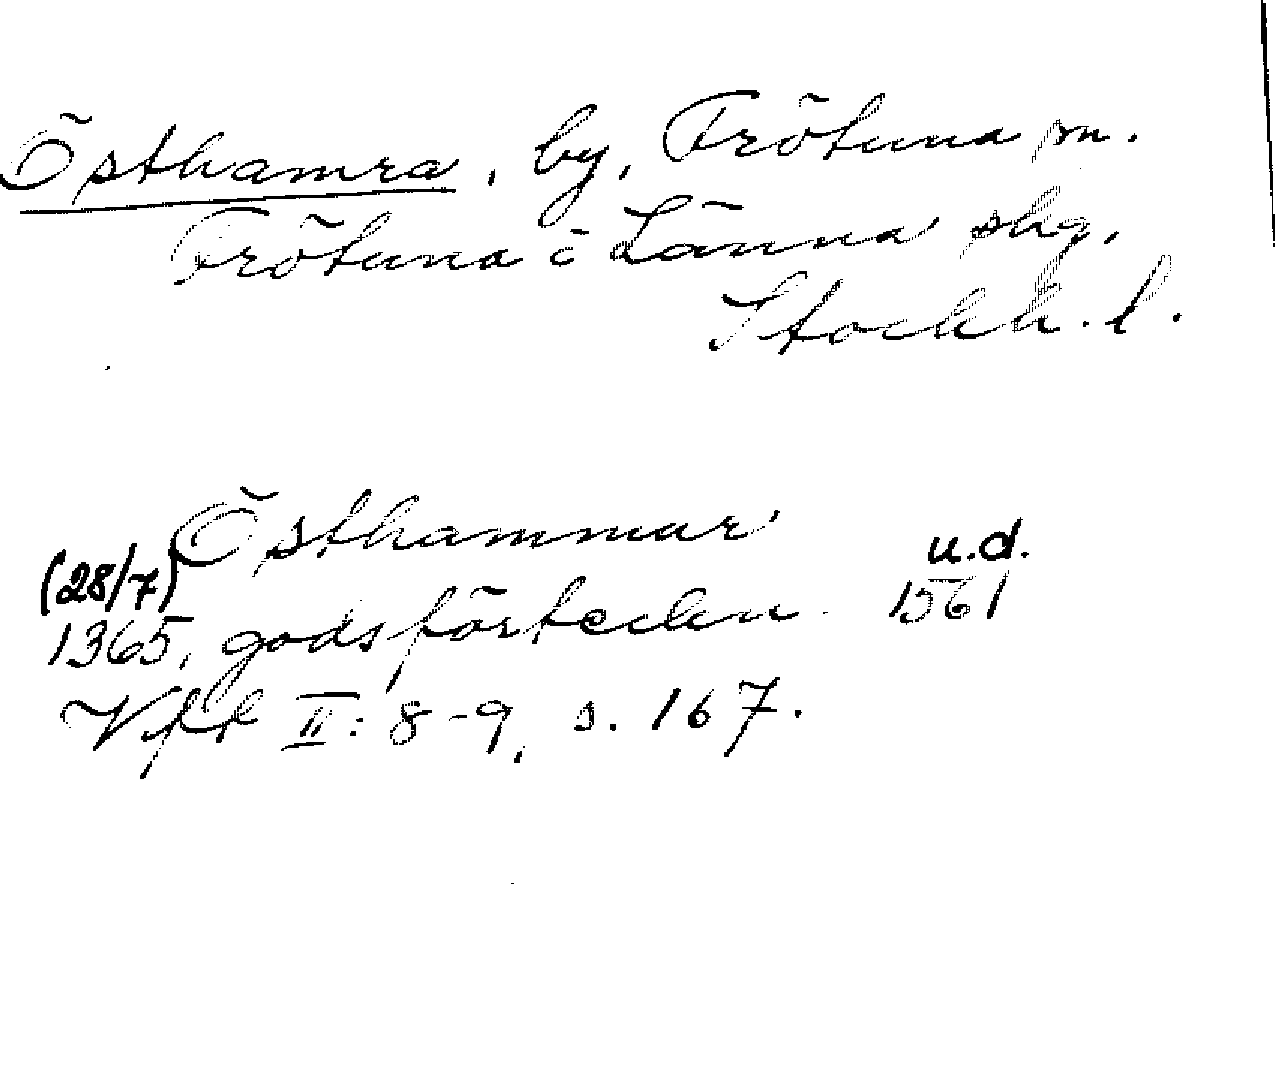 Östhamra, by, Frötuna sn.
Frötuna o Länna skg,
Stockh. l.
Östhammar u.d.
(28/7)
1365, godsförteckn. 1561
Vft II: 8-9, s. 167.